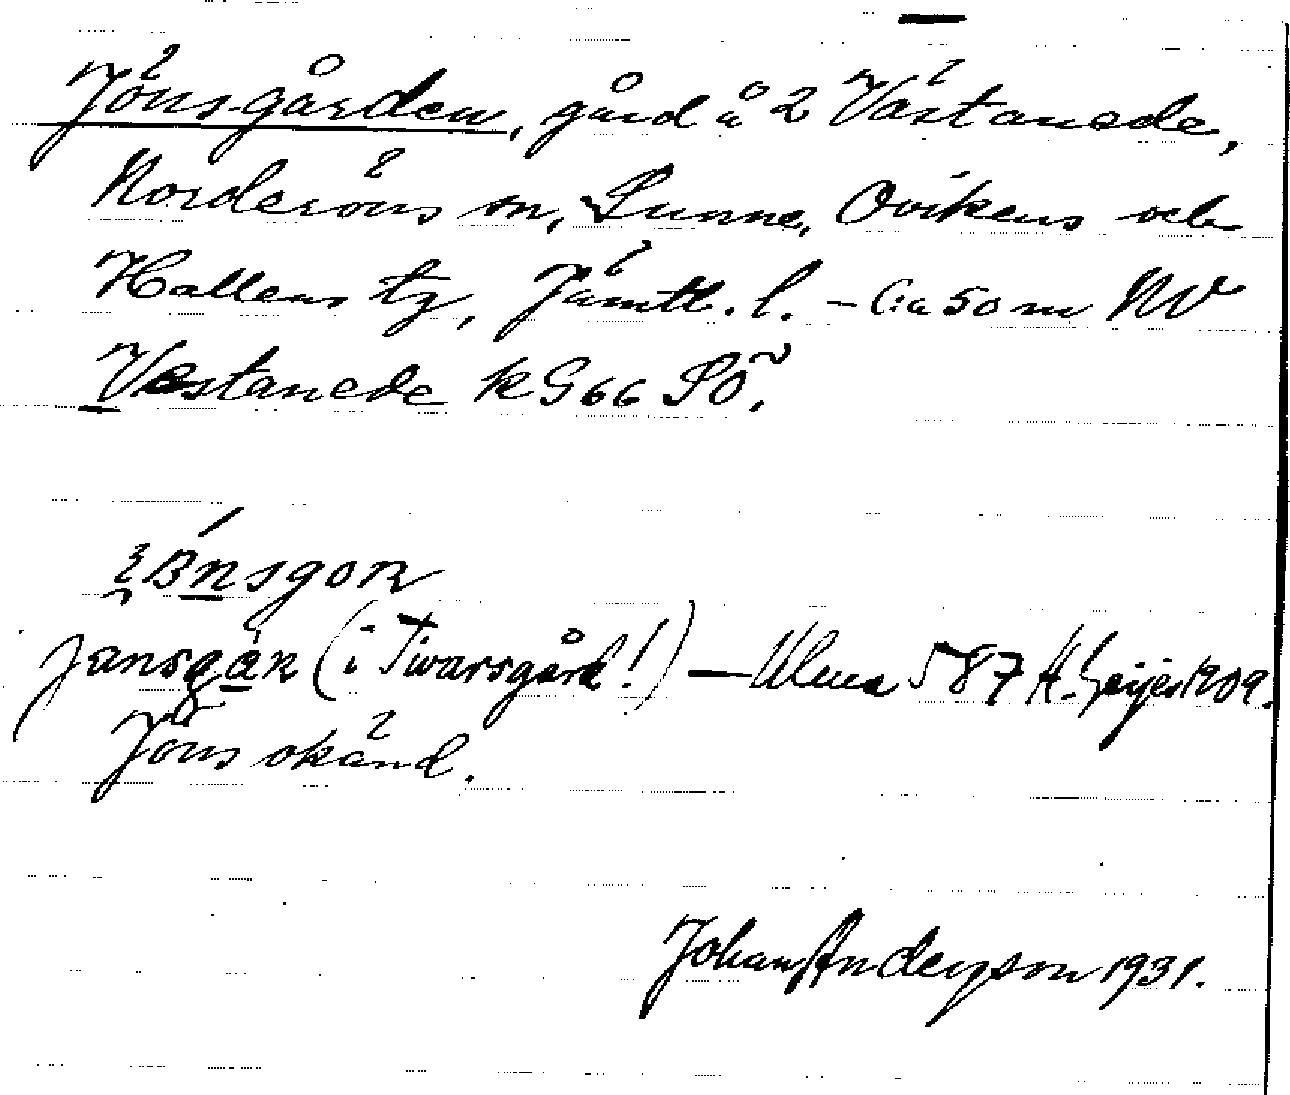 Jönsgården, gård å 2 Västanede,
Norderöns sn, Sunne, Ovikens och
Hallens tg, Jämtl. l. – Ca 50 m NV
Västanede k G 66 SÖ.
jansgäṇ (i Tivarsgård!) — Ulma 587 H. Geijer 1909.
Jöns okänd.
Johan Anderson 1931.